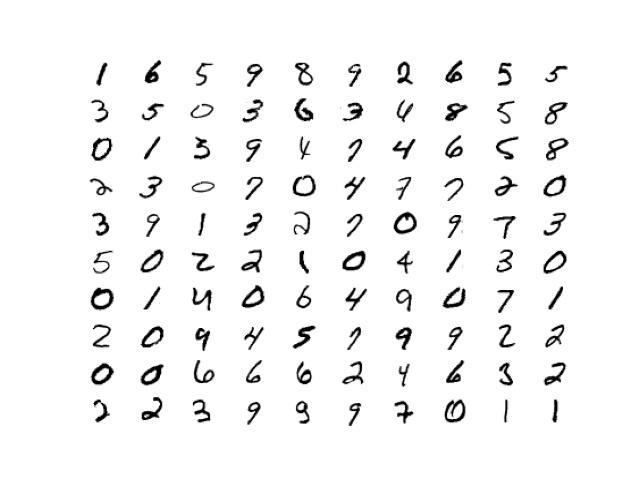 1 6 5 9 8 9 2 6 5 5
3 5 0 3 6 3 4 8 5 8
0 1 3 9 4 7 4 6 5 8
2 3 0 7 0 4 7 7 2 0
3 9 1 3 2 7 0 9 7 3
5 0 2 2 1 0 4 1 3 0
0 1 4 0 6 4 9 0 7 1
2 0 9 4 5 7 9 9 2 2
0 0 6 6 6 2 4 6 3 2
2 2 3 9 9 9 7 0 1 1